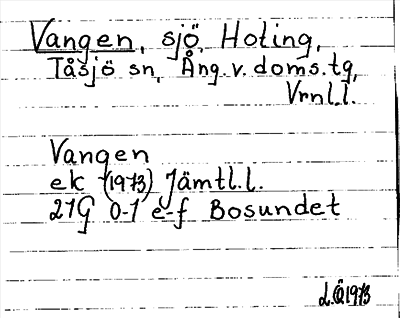 Vangen, sjö, Hoting,
Tåsjö sn, Ång. v. doms.tg,
Vrnl.l.
Vangen
ek (1973) Jämtl.l.
21G 0-1 e-f Bosundet
L.Ö 1973